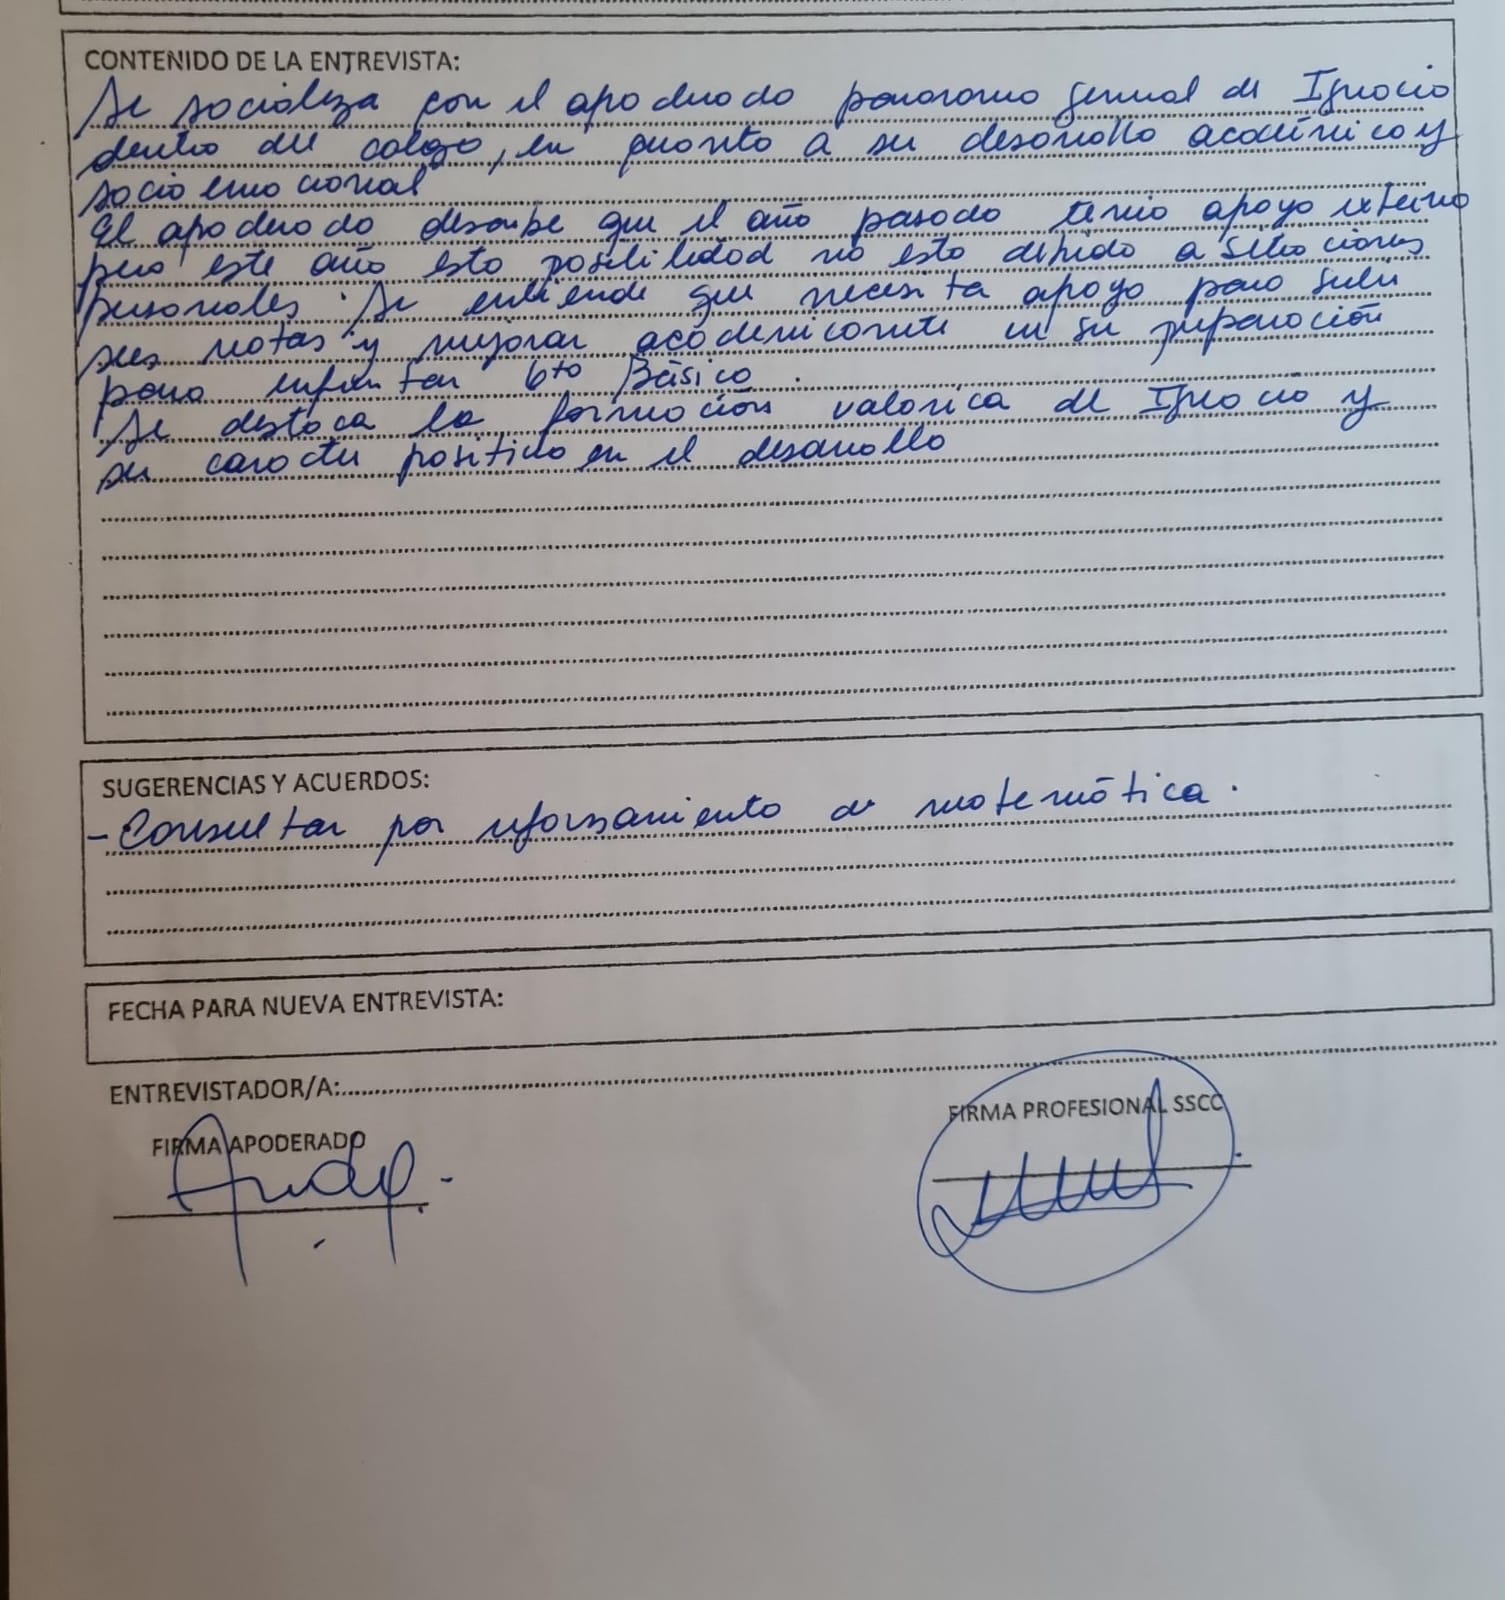 CONTENIDO DE LA ENTREVISTA:
Se socializa con el apoderado panorama general de Ignacio
dentro del colegio, en cuanto a su desarrollo académico y
socio emocional
El apoderado describe que el año pasado tenia apoyo externo
pero este año esta posibilidad no esta debido a situaciones
personales. Se entiende que necesita apoyo para subir
sus notas y mejorar academicamente en su preparación
para enfrentar 6to Básico.
Se destaca la formación valorica de Ignacio y
su caracter positivo en el desarrollo
SUGERENCIAS Y ACUERDOS:
- Consultar por reforzamiento de matemática.
FECHA PARA NUEVA ENTREVISTA:
ENTREVISTADOR/A:
FIRMA APODERADO
FIRMA PROFESIONAL SSCC